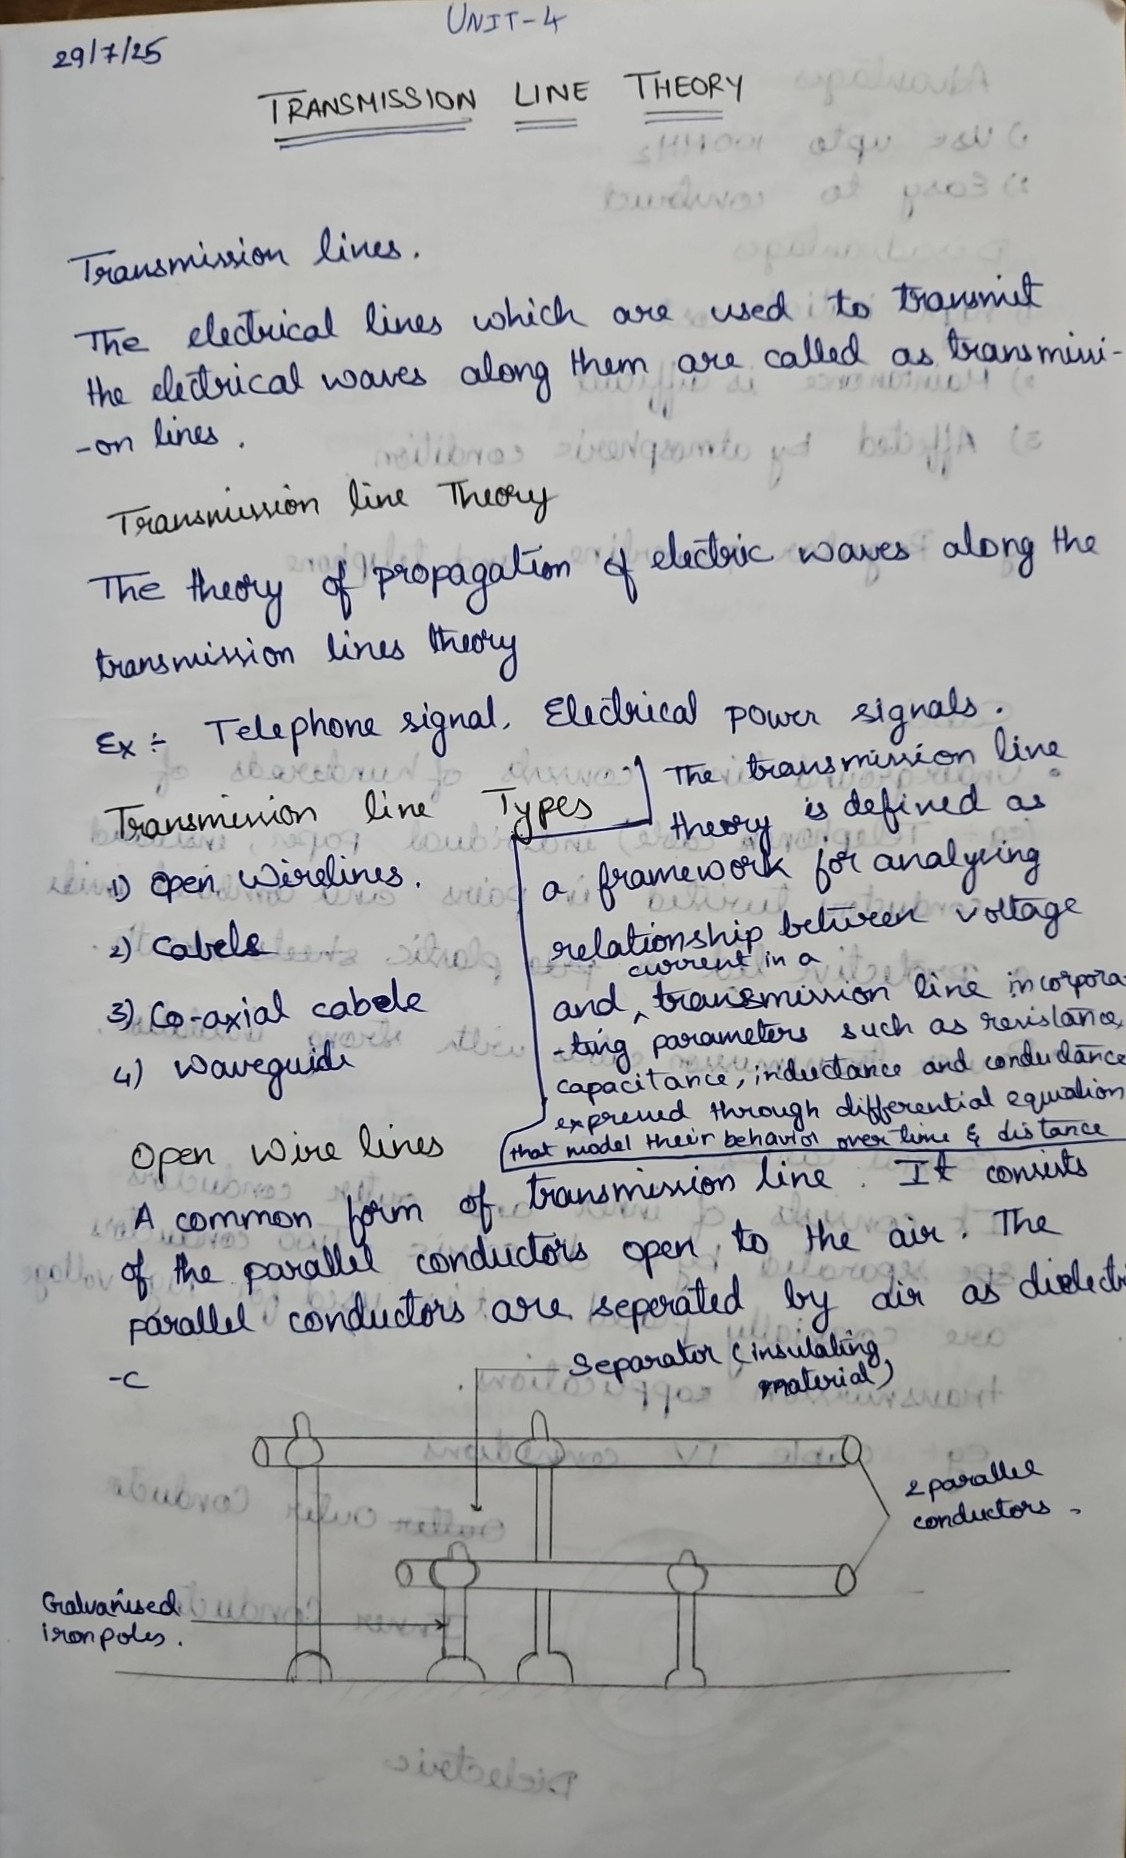 UNIT-4
29/7/25
TRANSMISSION LINE THEORY
Transmission lines.
The electrical lines which are used to transmit
the electrical waves along them are called as transmissi-
-on lines.
Transmission line Theory
The theory of propagation of electric waves along the
transmission lines theory
Ex :- Telephone signal, Electrical power signals.
Transmission line Types
1) Open Wirelines.
2) Cabels
3) Co-axial cabele
4) Waveguide
The transmission line
theory is defined as
a framework for analysing
relationship between voltage
current in a
and ^ transmission line incorpora
-ting parameters such as resistance,
capacitance, inductance and conductance
expressed through differential equation
that model their behavior over time & distance
Open Wire lines
A common form of transmission line. It consists
of the parallel conductors open to the air. The
parallel conductors are seperated by air as dielectri
-c
Separator (insulating
material)
2 parallel
conductors.
Galvanised
iron poles.